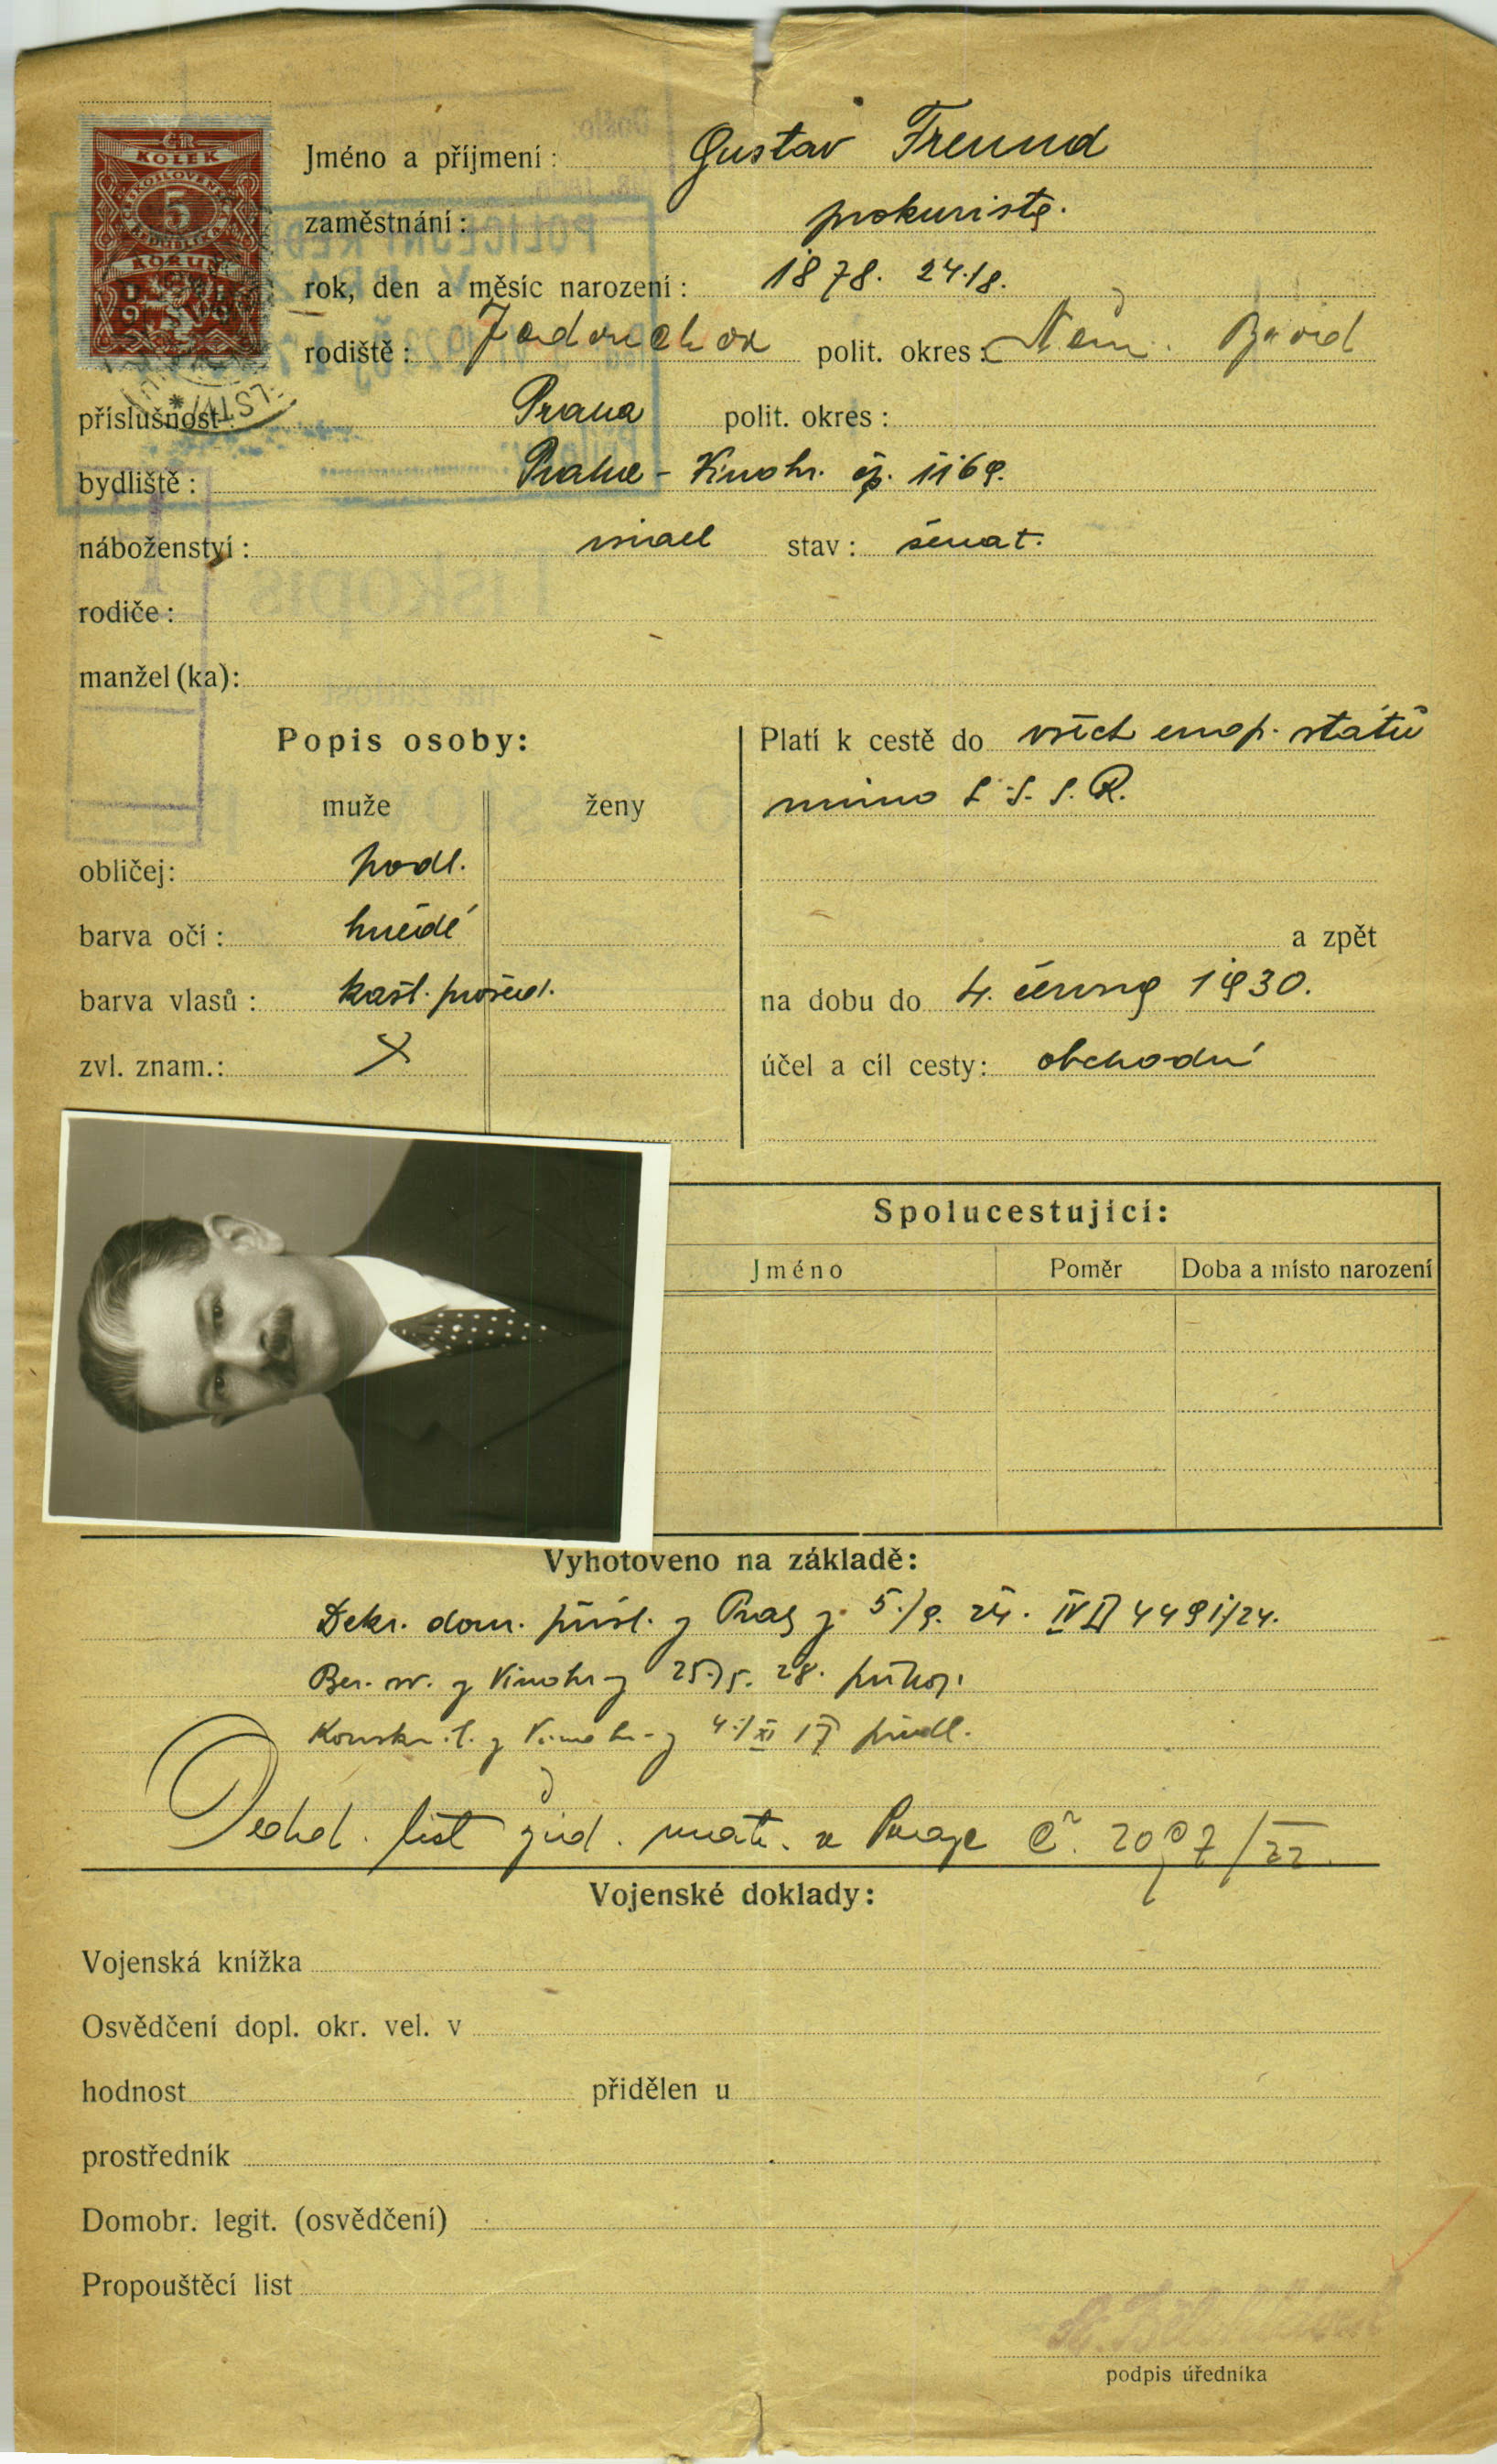 ČR
KOLEK
5
KORUN
Jméno a příjmení: Gustav Freund
zaměstnání: prokurista.
rok, den a měsíc narození: 1878. 24./8.
rodiště: polit. okres: Něm. Brod
příslušnost: Praha polit. okres:
bydliště: Praha - Vinohr. čp. 1169.
náboženství: israel stav: ženat.
rodiče:
manžel(ka):
Popis osoby:
muže ženy
obličej: podl.
barva očí: hnědé
barva vlasů: kašt. prošed.
zvl. znam.: X
Platí k cestě do všech evrop. států
mimo S.S.S.R.
a zpět
na dobu do 4. června 1930.
účel a cíl cesty: obchodní
Spolucestující:
Jméno Poměr Doba a místo narození
Vyhotoveno na základě:
Dekr. dom. přísl. z Prahy z 5./9. 24. IV 4491/24.
z Vinohr. z 25./5. 28.
z Vinohr. z 4./XI 17 předl.
list žid. matr. v Praze č.
Vojenské doklady:
Vojenská knížka
Osvědčení dopl. okr. vel. v
hodnost přidělen u
prostředník
Domobr. legit. (osvědčení)
Propouštěcí list
podpis úředníka